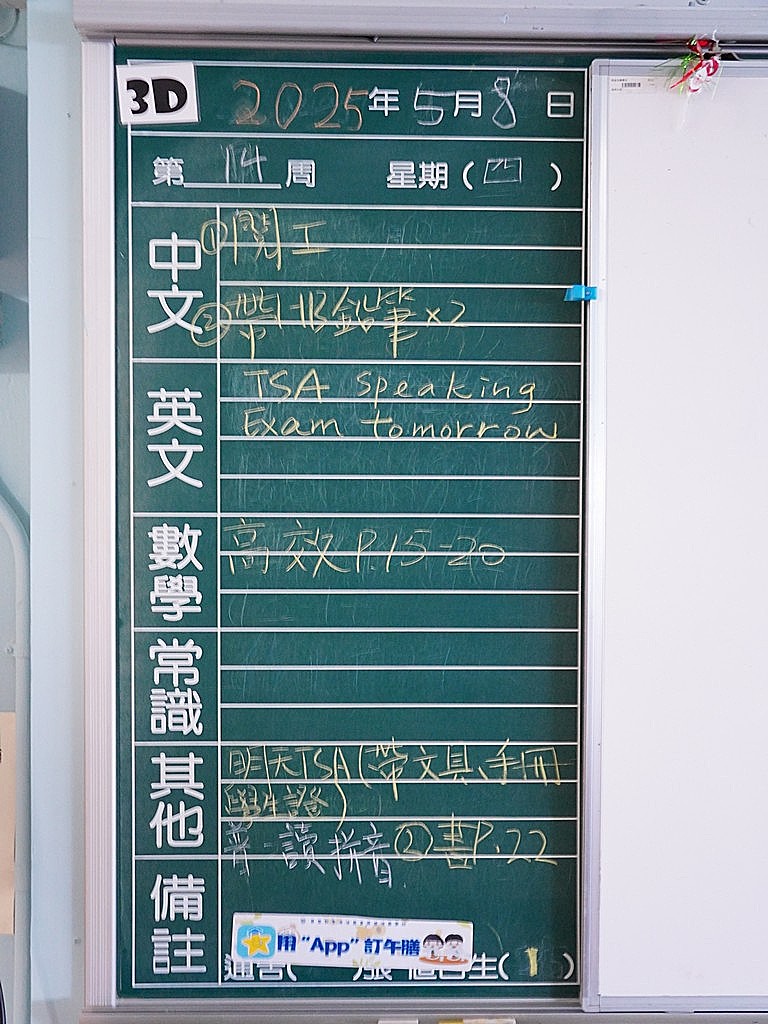 3D 2025年5月8日
第14周 星期(四)
中文
①閱工
②帶HB鉛筆×2
英文
TSA speaking
Exam tomorrow
數學
高效P.15-20
常識
其他
明天TSA(帶文具、手冊
學生證)
普-讀拼音②書P.22
備註
用 "App" 訂午膳
通告( 張 值日生(1)